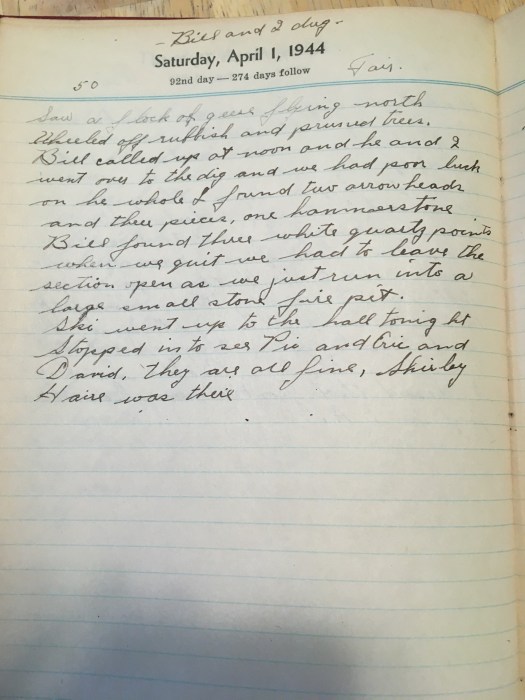 - Bill and I dug -
Saturday, April 1, 1944
92nd day — 274 days follow
50
Fair.
Saw a flock of geese flying north
Wheeled off rubbish and pruned trees.
Bill called up at noon and he and I
went over to the dig and we had poor luck
on he whole I found two arrowheads
and thee pieces, one hammerstone
Bill found three white quartz points
when we quit we had to leave the
section open as we just run into a
large small stone fire pit.
Ski went up to the hall tonight
Stopped in to see Pie and Eric and
David. They are all fine, Shirley
Haire was there